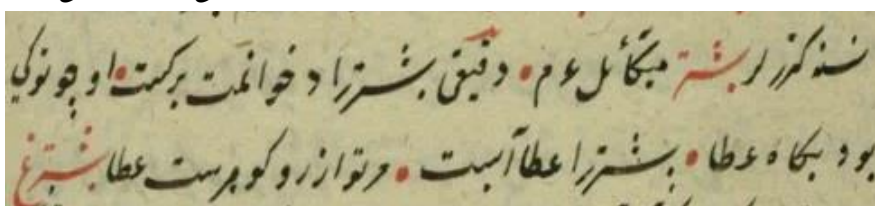 بشتر میکائل ع م • دقیقی بشتر راد خوانمت برکست • او چو توکی
بود بکاه عطا • بشتر را عطا آبست • مر ترا زر و کوهرست عطا بشترغ